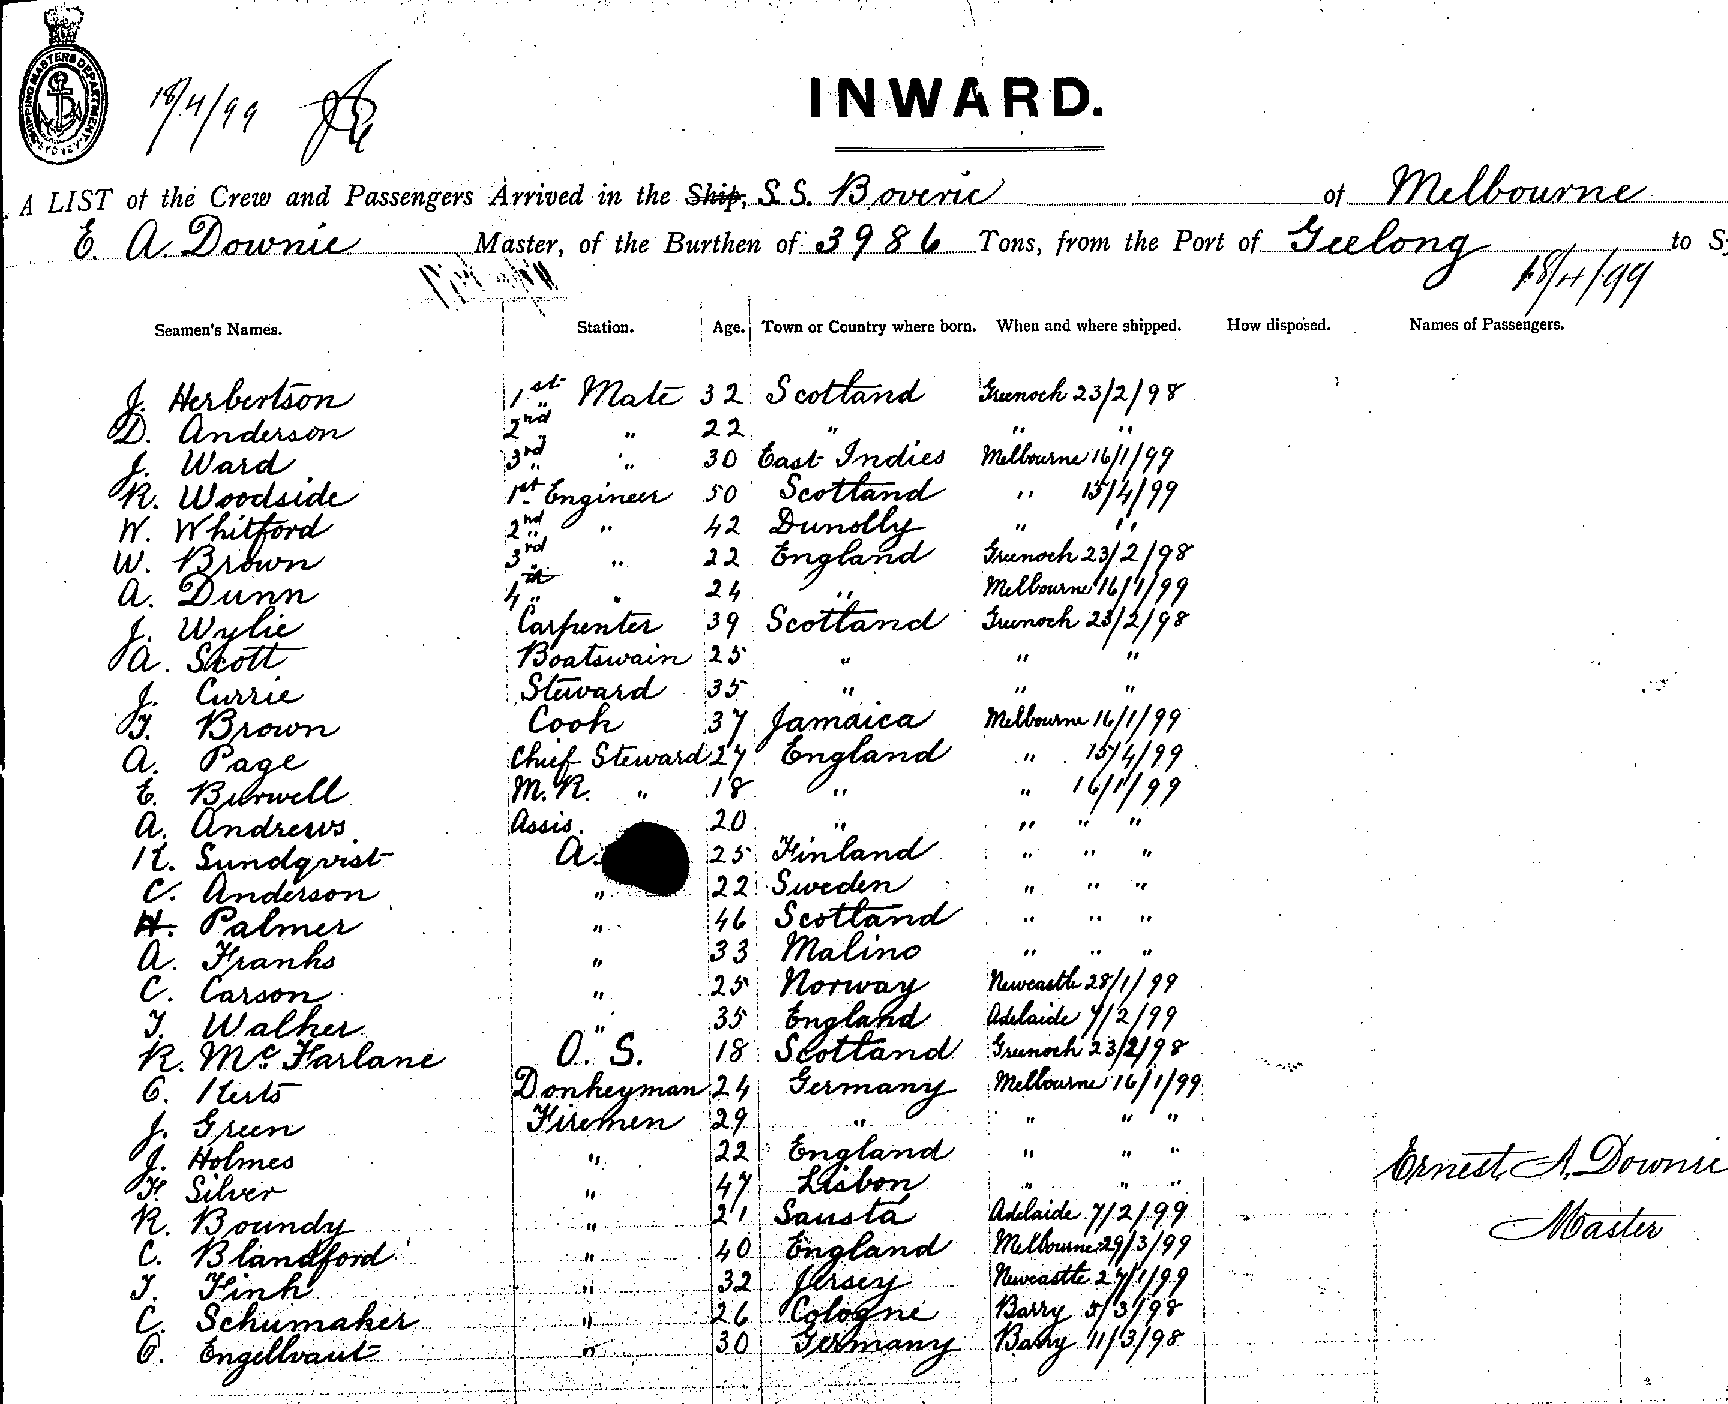 SHIPPING MASTERS DEPARTMENT SYDNEY
18/4/99
INWARD.
A LIST of the Crew and Passengers Arrived in the Ship, S.S. Boveric of Melbourne
E. A. Downie Master, of the Burthen of 3986 Tons, from the Port of Geelong to S
18/4/99
Seamen's Names. Station. Age. Town or Country where born. When and where shipped. How disposed. Names of Passengers.
J. Herbertson 1st Mate 32 Scotland Greenock 23/2/98
D. Anderson 2nd " 22 " " "
J. Ward 3rd " 30 East Indies Melbourne 16/1/99
R. Woodside 1st Engineer 50 Scotland " 15/4/99
W. Whitford 2nd " 42 Dunolly " "
W. Brown 3rd " 22 England Greenock 23/2/98
A. Dunn 4th " 24 " Melbourne 16/1/99
J. Wylie Carpenter 39 Scotland Greenock 23/2/98
A. Scott Boatswain 25 " " "
J. Currie Steward 35 " " "
T. Brown Cook 37 Jamaica Melbourne 16/1/99
A. Page Chief Steward 27 England " 15/4/99
E. Burwell M.R. " 18 " " 16/1/99
A. Andrews Assis. 20 " " " "
K. Sundqvist A. 25 Finland " " "
C. Anderson " 22 Sweden " " "
H. Palmer " 46 Scotland " " "
A. Franks " 33 Malino " " "
C. Carson " 25 Norway Newcastle 28/1/99
T. Walker " 35 England Adelaide 7/2/99
R. McFarlane O.S. 18 Scotland Greenock 23/2/98
O. Kerts Donkeyman 24 Germany Melbourne 16/1/99
J. Green Firemen 29 " " " "
J. Holmes " 22 England " " "
F. Silver " 47 Lisbon " " "
Ernest A. Downie
R. Boundy " 21 Sausta Adelaide 7/2/99
Master
C. Blandford " 40 England Melbourne 29/3/99
T. Fink " 32 Jersey Newcastle 27/1/99
C. Schumaker " 26 Cologne Barry 5/3/98
O. Engellvaut " 30 Germany Barry 11/3/98